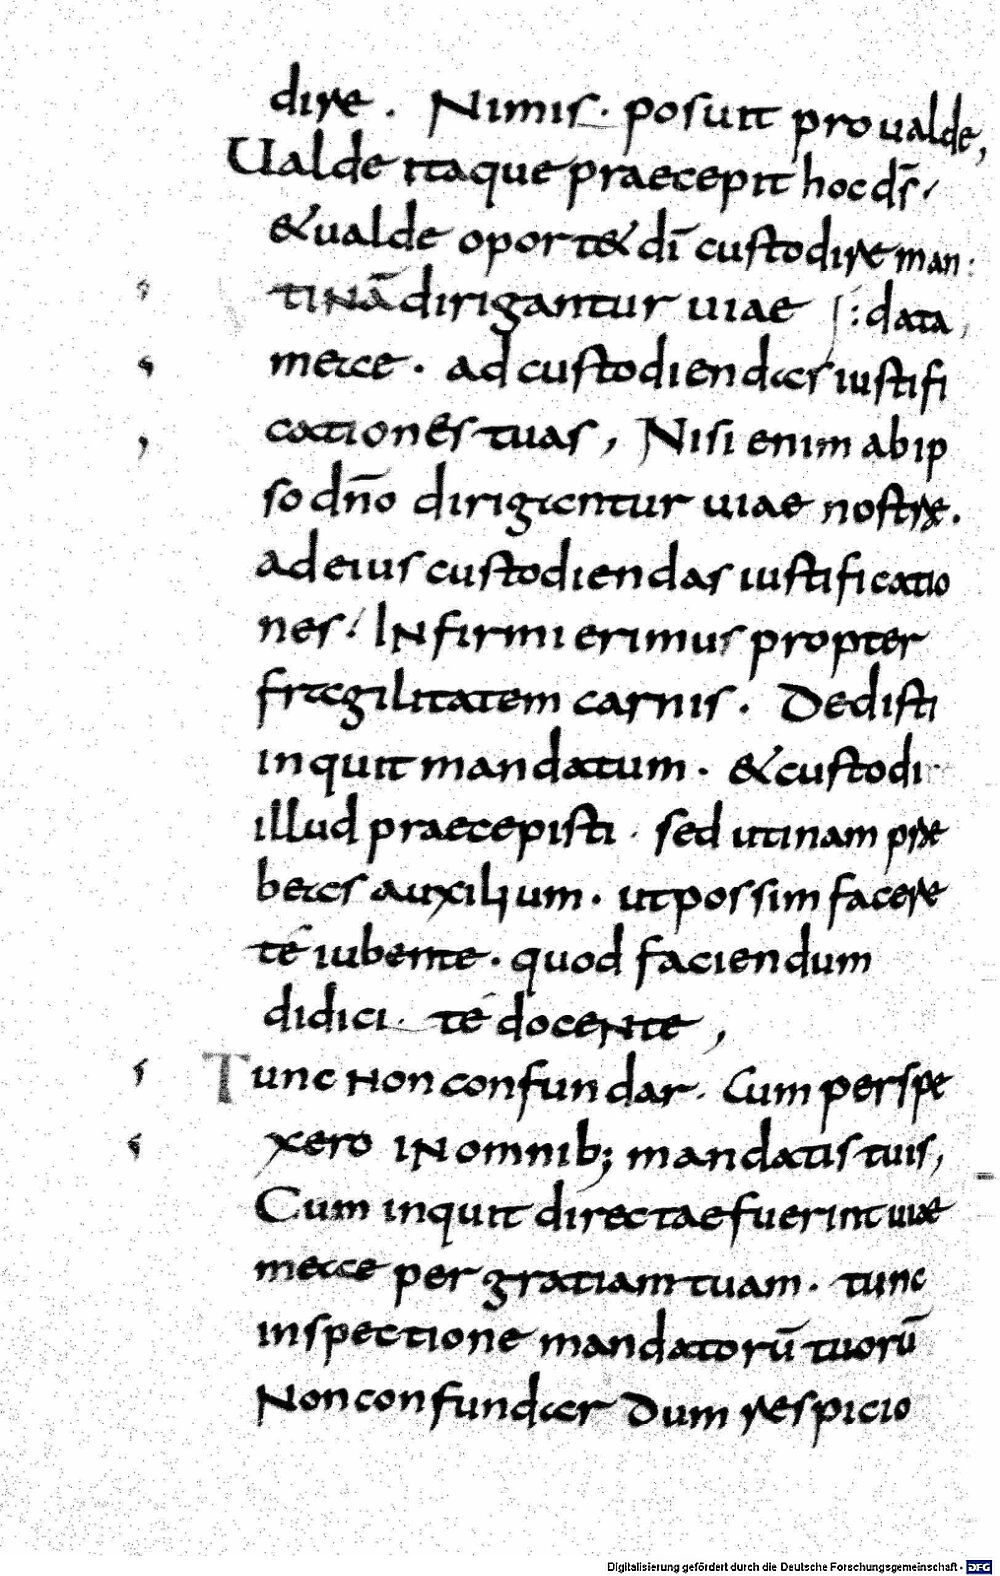 dire . Nimis · posuit pro ualde,
Ualde itaque praecepit hoc ds̄ /
& ualde oport& dī custodire man :
tinā dirigantur uiae : data,
meae . ad custodiendas iustifi
cationes tuas , Nisi enim ab ip
so dn̄o dirigantur uiae nostrae .
ad eius custodiendas iustificatio
nes ! Infirmi erimus propter
fragilitatem carnis . Dedisti
inquit mandatum . & custodi
illud praecepisti . sed utinam prae
beas auxilium . ut possim facere
té iubente . quod faciendum
didici . té docente ,
Tunc non confundar . Cum perspe
xero in omnib; mandatis tuis,
Cum inquit directae fuerint uiae
meae per gratiam tuam . tunc
inspectione mandatorū tuorū
Non confundar Dum respicio
Digitalisierung gefördert durch die Deutsche Forschungsgemeinschaft - DFG